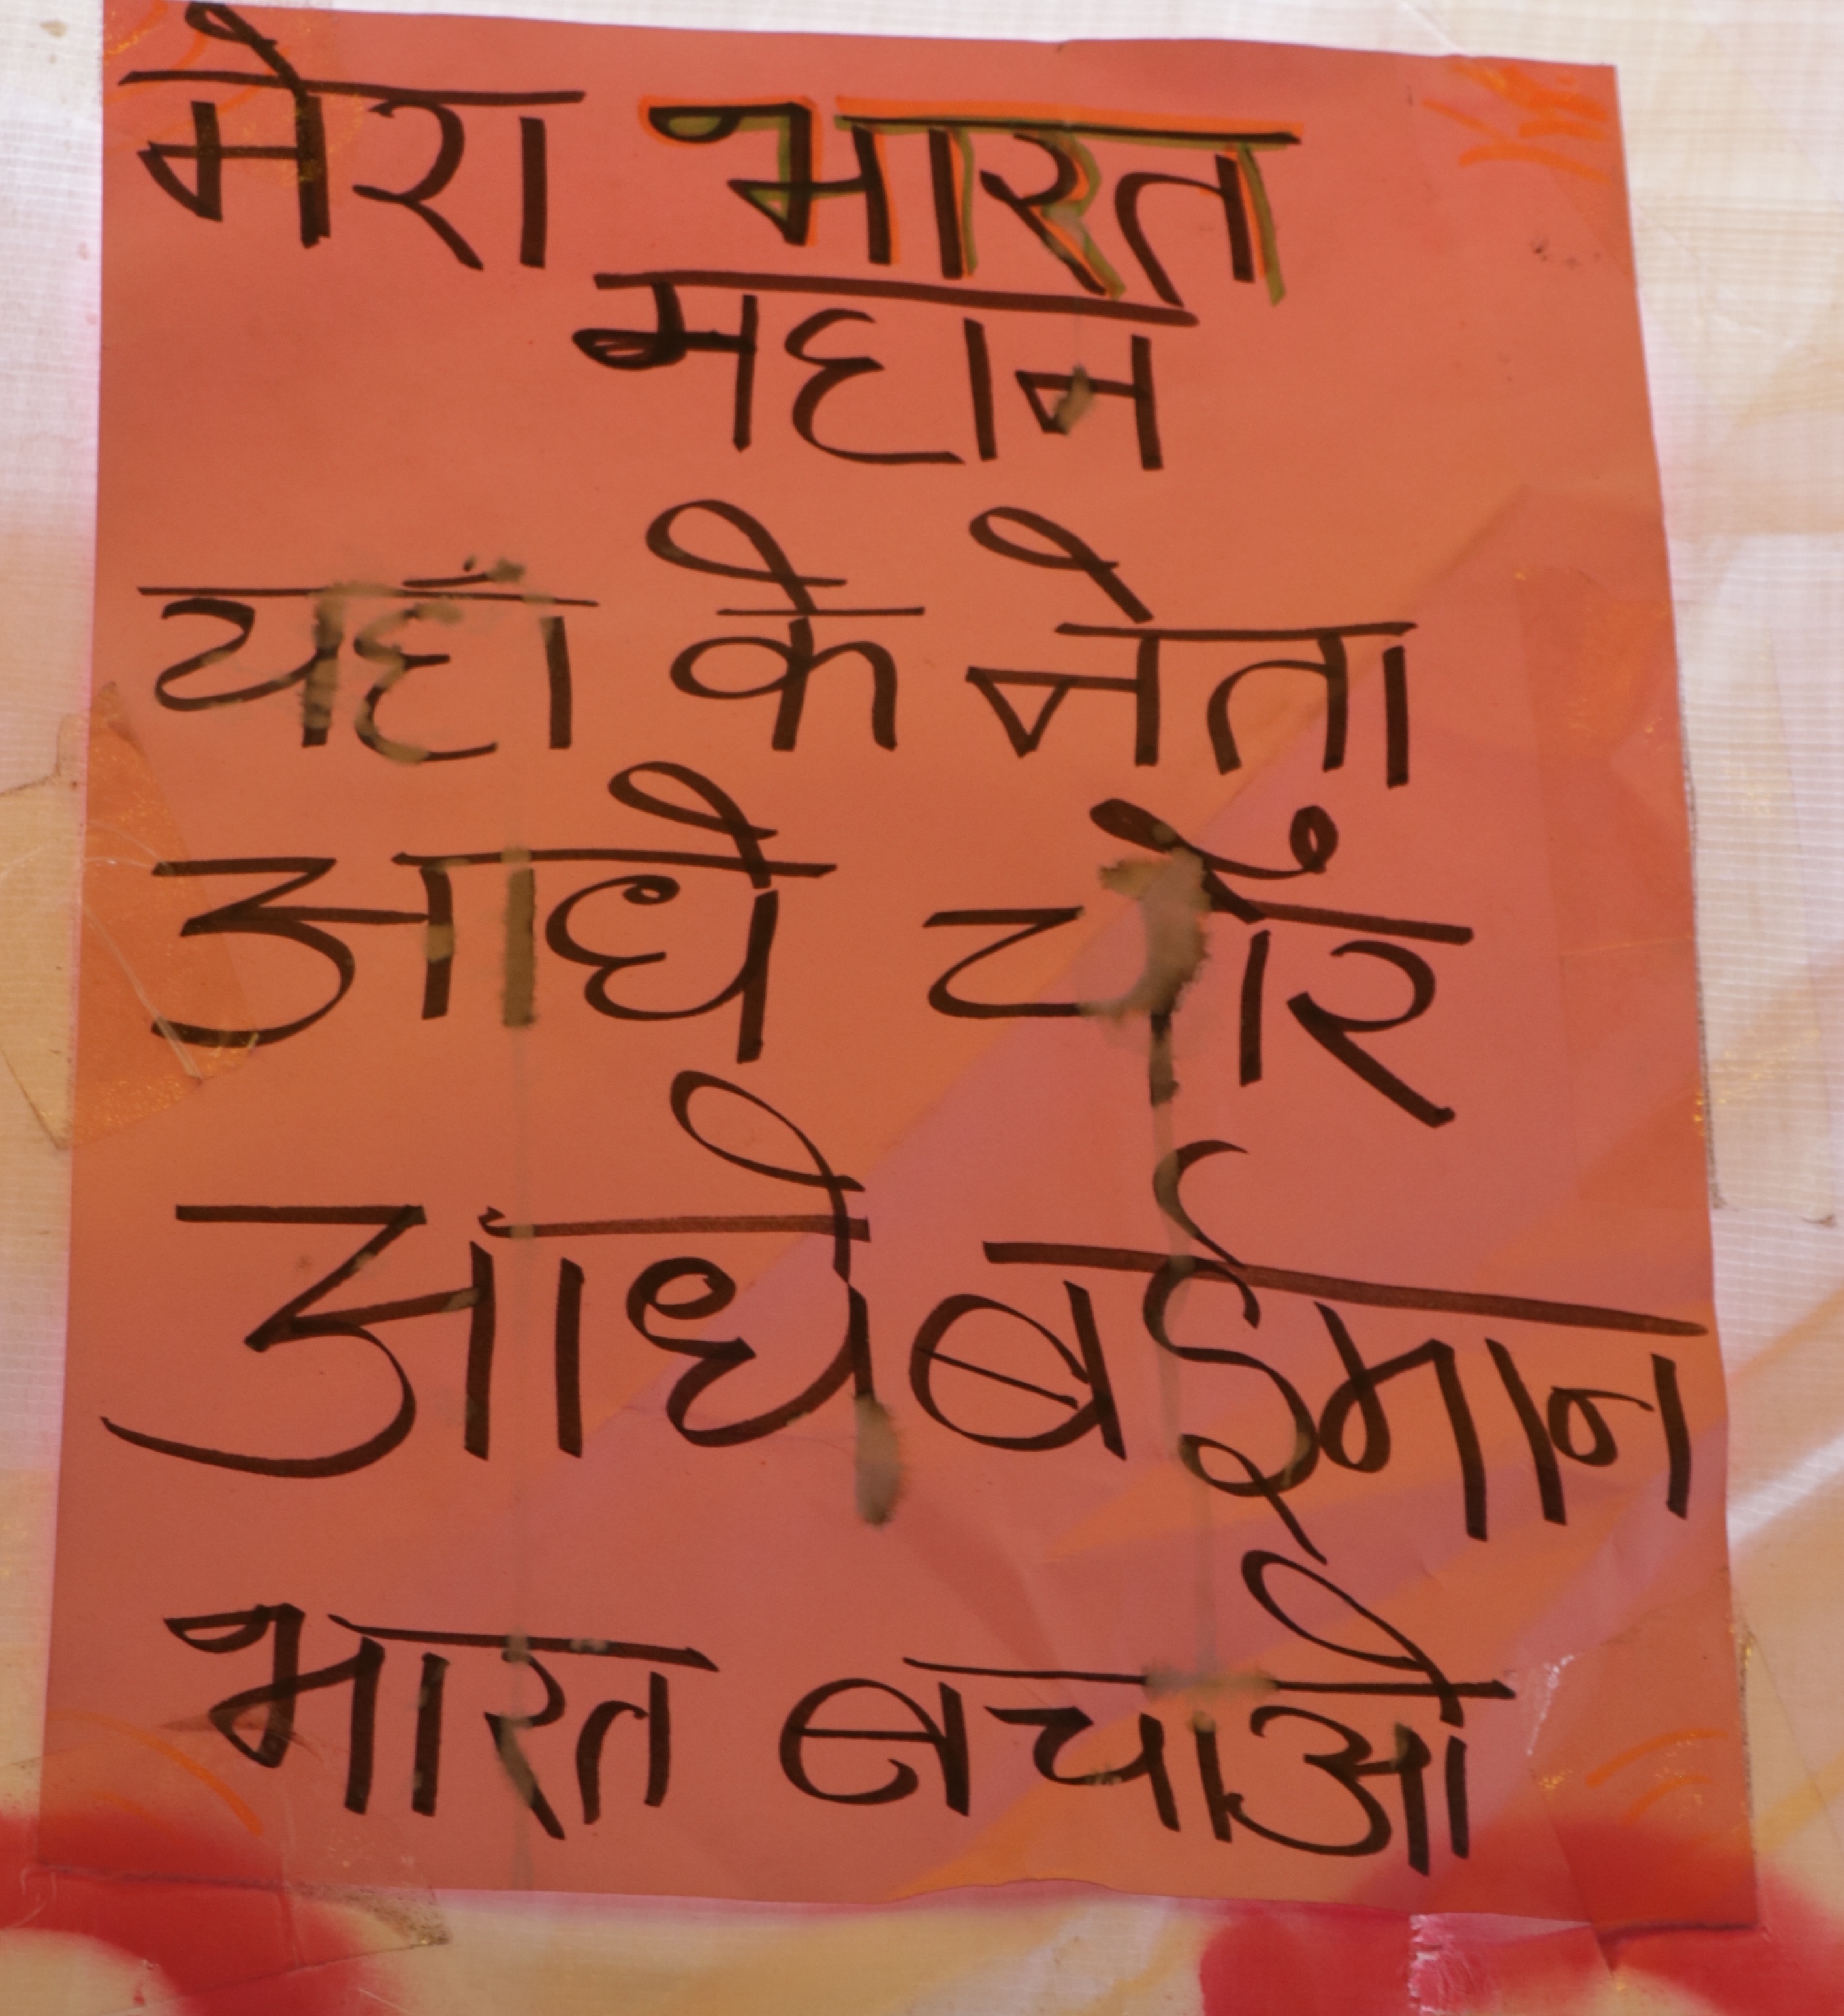 मेरा भारत
महान
यहाँ के नेता
आधे चोर
आधे बईमान
भारत बचाओ